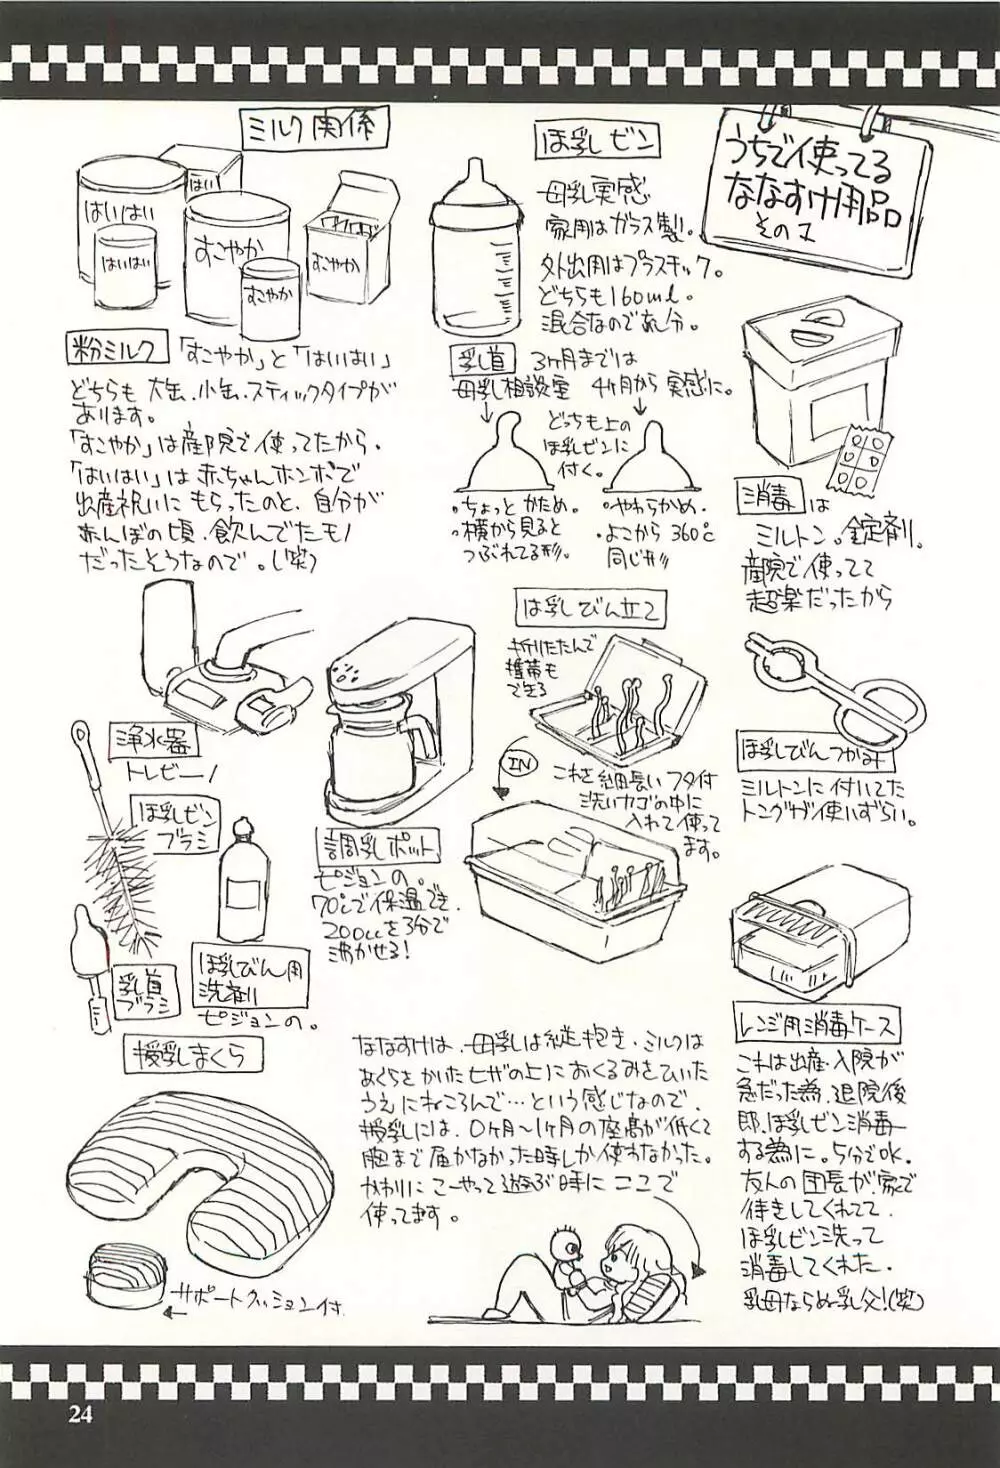 うちで使ってる
ななすけ用品
その1
ミルク関係
はいはい
はい
はいはい
すこやか
すこやか
すこやか
粉ミルク
「すこやか」と「はいはい」
どちらも大缶.小缶.スティックタイプが
あります。
「すこやか」は産院で使ってたから.
「はいはい」は赤ちゃんホンポで
出産祝いにもらったのと、自分が
赤んぼの頃.飲んでたモノ
だったそうなので。(笑)
ほ乳ビン
母乳実感
家用はガラス製。
外出用はプラスチック。
どちらも160ml。
混合なので充分。
乳首
3ヶ月までは
母乳相談室
4ヶ月から実感に。
どっちも上の
ほ乳ビンに
付く。
・ちょっとかため。
・横から見ると
つぶれてる形。
・やわらかめ.
・よこから360℃
同じ形
消毒は
ミルトン。錠剤。
産院で使ってて
超楽だったから
ほ乳びんつかみ
ミルトンに付いてた
トングが使いずらい。
浄水器
トレビーノ
ほ乳ビン
ブラシ
乳首
ブラシ
ほ乳びん用
洗剤
ピジョンの。
調乳ポット
ピジョンの。
70℃で保温でき.
200ccを3分で
沸かせる!
ほ乳びん立て
折りたたんで
携帯も
できる
IN
これを細長いフタ付
洗いカゴの中に
入れて使って
ます。
レンジ用消毒ケース
これは出産・入院が
急だった為.退院後
即、ほ乳ビン消毒
する為に。5分でOK.
友人の団長が、家で
待きしてくれてて.
ほ乳ビン洗って
消毒してくれた.
乳母ならぬ乳父!(笑)
授乳まくら
サポートクッション付.
ななすけは、母乳は縦抱き、ミルクは
あぐらをかいたヒザの上におくるみをひいた
うえにねころんで…という感じなので.
授乳には、0ヶ月〜1ヶ月の座高が低くて
胸まで届かなかった時しか使わなかった。
かわりにこーやって遊ぶ時にここで
使ってます。
24